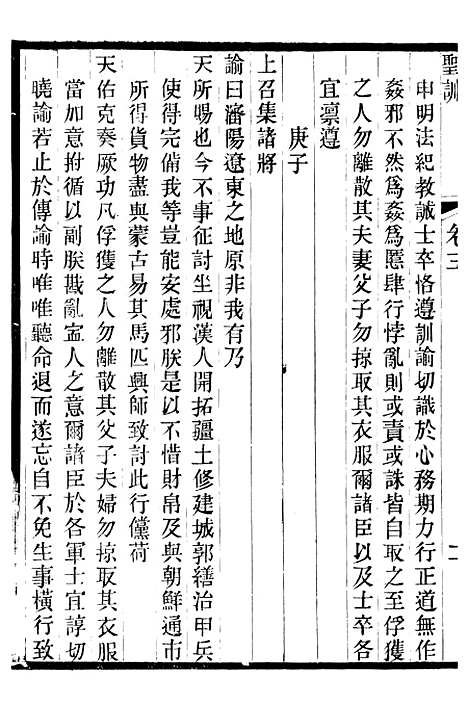 聖訓
卷三
申明法紀教誡士卒恪遵訓諭切識於心務期力行正道無作
姦邪不然爲姦爲慝肆行悖亂則或責或誅皆自取之至俘獲
之人勿離散其夫妻父子勿掠取其衣服爾諸臣以及士卒各
宜禀遵
庚子
上召集諸將
諭曰瀋陽遼東之地原非我有乃
天所賜也今不事征討坐視漢人開拓疆土修建城郭繕治甲兵
使得完備我等豈能安處邪朕是以不惜財帛及與朝鮮通市
所得貨物盡與蒙古易其馬匹興師致討此行儻荷
天佑克奏厥功凡俘獲之人勿離散其父子夫婦勿掠取其衣服
當加意拊循以副朕戡亂寍人之意爾諸臣於各軍士宜諄切
曉諭若止於傳諭時唯唯聽命退而遂忘自不免生事橫行致